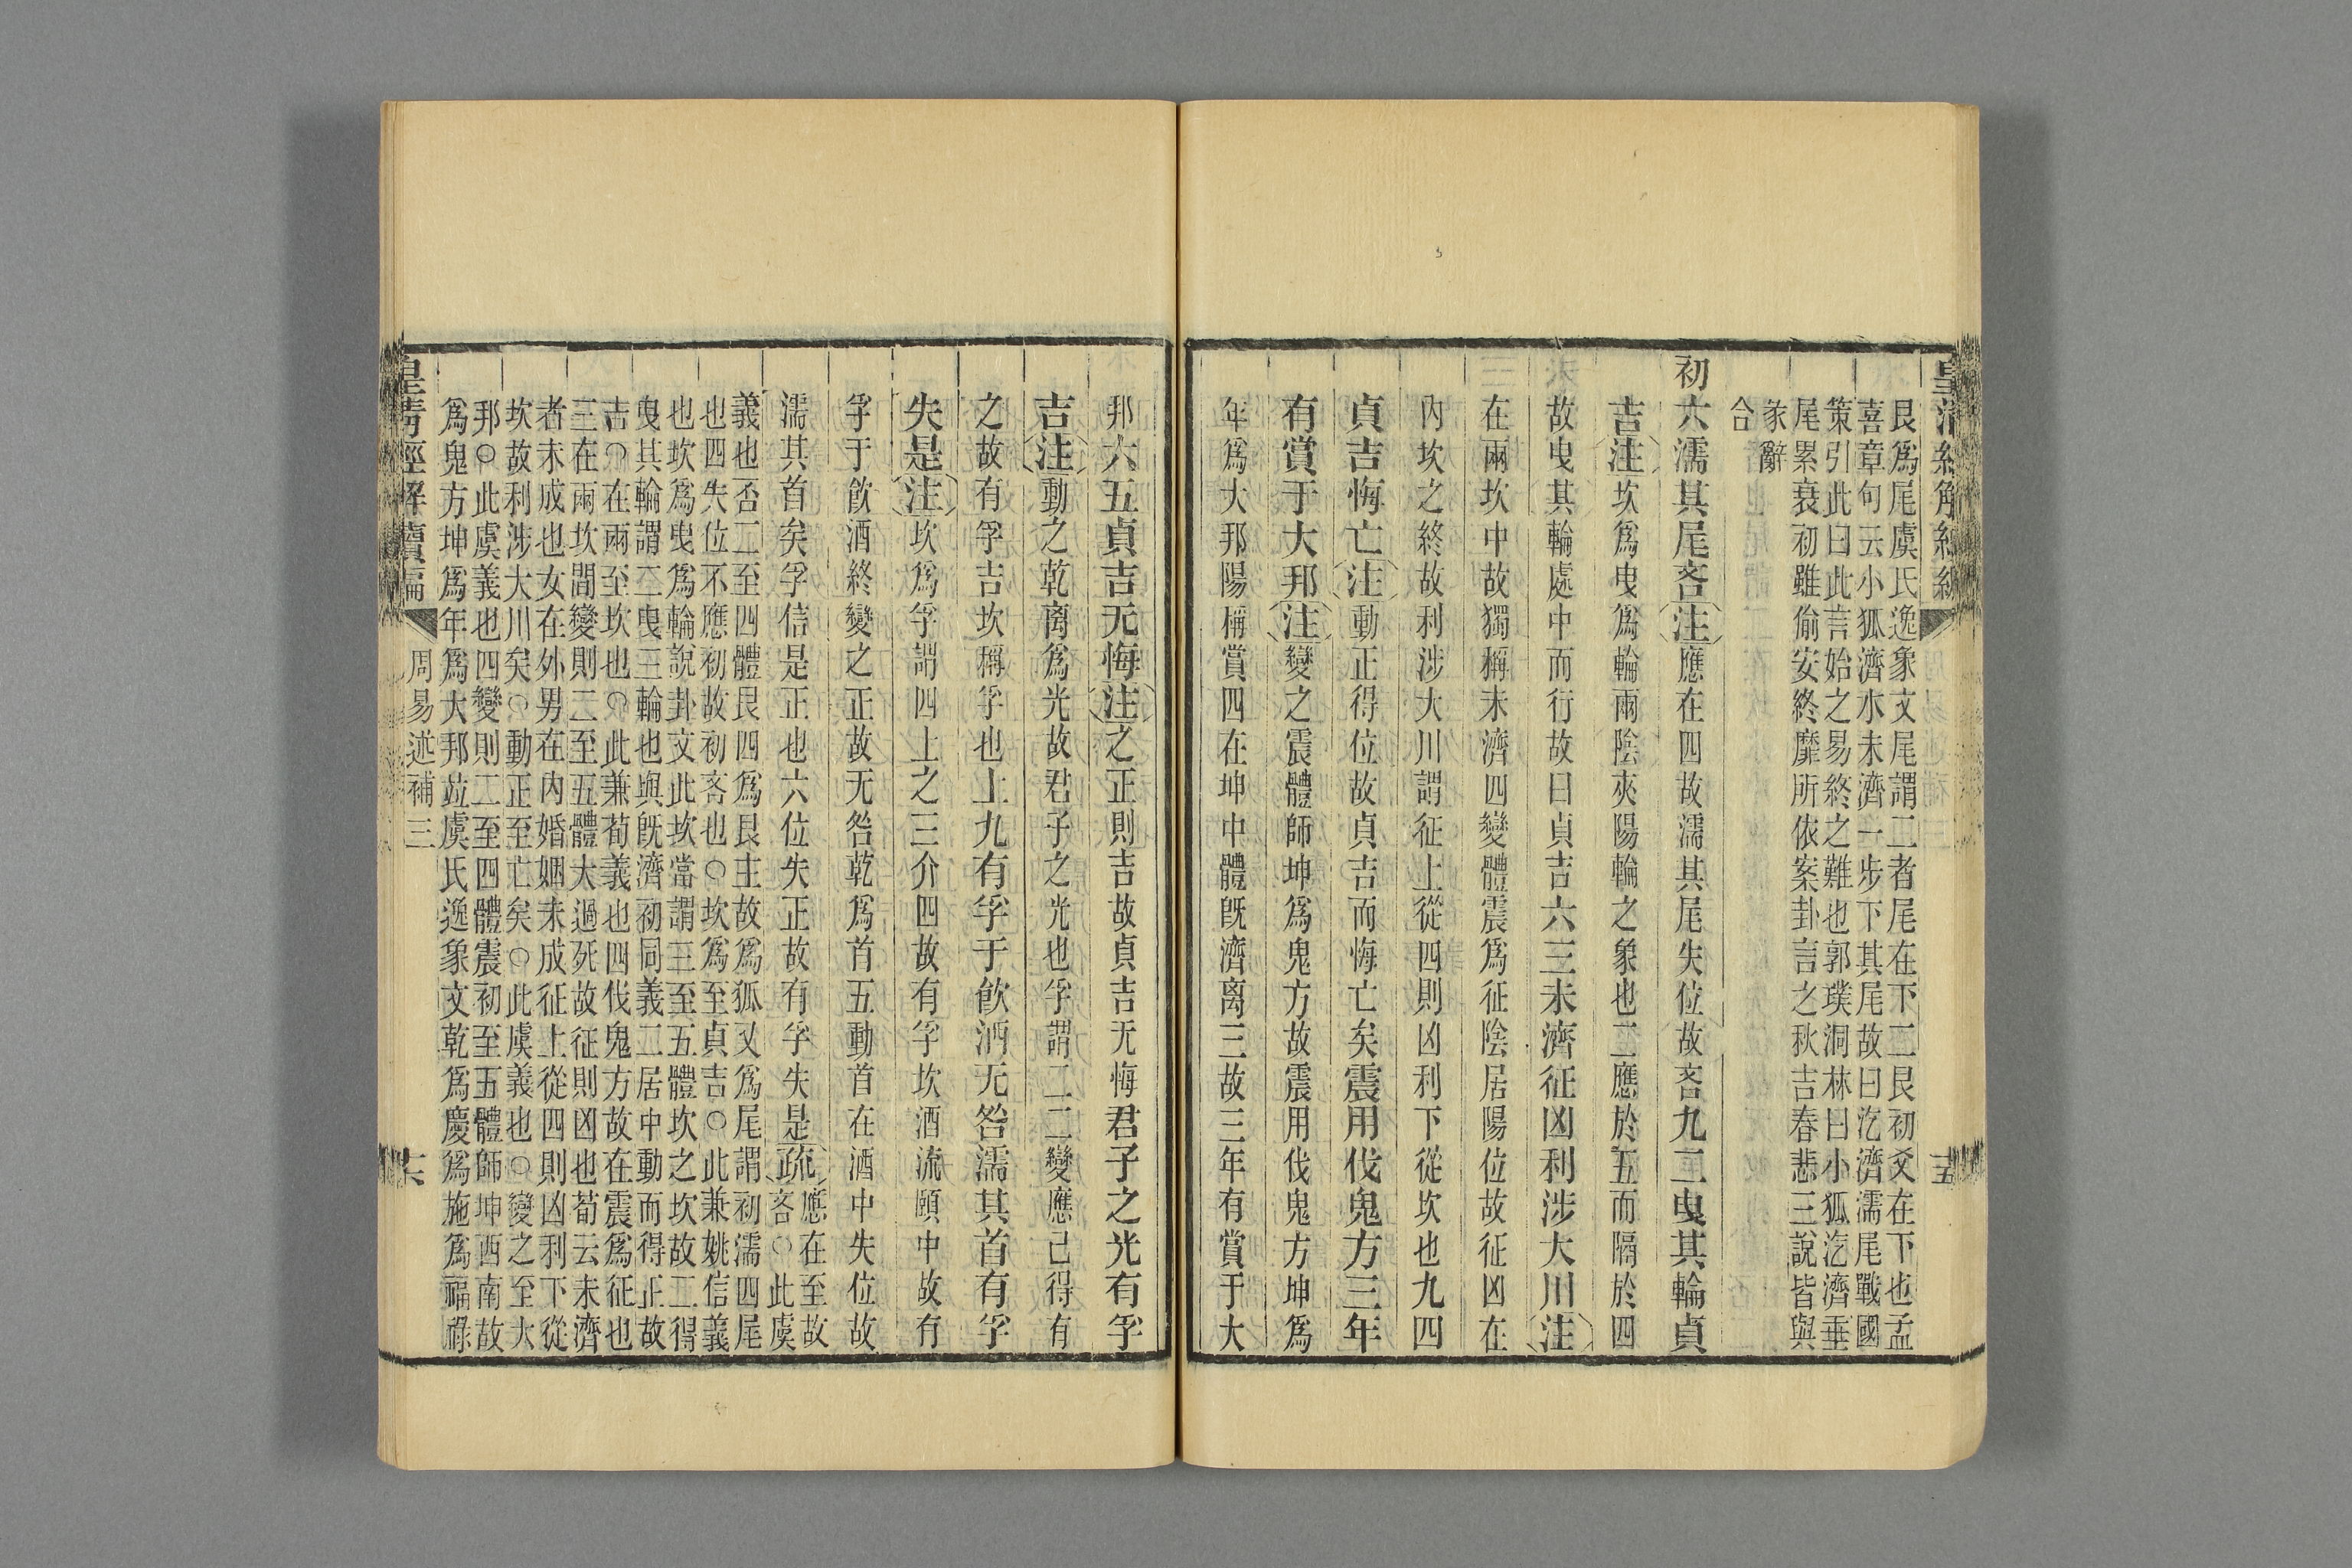 皇清經解續編
五
艮爲尾虞氏逸象文尾謂二者尾在下三艮初爻在下也孟
喜章句云小狐濟水未濟一步下其尾故曰汔濟濡尾戰國
策引此曰此言始之易終之難也郭璞洞林曰小狐汔濟垂
尾累衰初雖偷安終靡所依案卦言之秋吉春悲三說皆與
彖辭
合
初六濡其尾吝注應在四故濡其尾失位故吝九二曳其輪貞
吉注坎爲曳爲輪兩陰夾陽輪之象也二應於五而隔於四
故曳其輪處中而行故曰貞吉六三未濟征凶利涉大川注
在兩坎中故獨稱未濟四變體震爲征陰居陽位故征凶在
內坎之終故利涉大川謂征上從四則凶利下從坎也九四
貞吉悔亡注動正得位故貞吉而悔亡矣震用伐鬼方三年
有賞于大邦注變之震體師坤爲鬼方故震用伐鬼方坤爲
年爲大邦陽稱賞四在坤中體旣濟离三故三年有賞于大
邦六五貞吉无悔注之正則吉故貞吉无悔君子之光有孚
吉注動之乾离爲光故君子之光也孚謂二二變應己得有
之故有孚吉坎稱孚也上九有孚于飮酒无咎濡其首有孚
失是注坎爲孚謂四上之三介四故有孚坎酒流頤中故有
孚于飮酒終變之正故无咎乾爲首五動首在酒中失位故
濡其首矣孚信是正也六位失正故有孚失是疏應在至故
吝○此虞
義也否二至四體艮四爲艮主故爲狐又爲尾謂初濡四尾
也四失位不應初故初吝也○坎爲至貞吉○此兼姚信義
也坎爲曳爲輪說卦文此坎當謂三至五體坎之坎故二得
曳其輪謂二曳三輪也與旣濟初同義二居中動而得正故
吉○在兩至坎也○此兼荀義也四伐鬼方故在震爲征也
三在兩坎間變則二至五體大過死故征則凶也荀云未濟
者未成也女在外男在內婚姻未成征上從四則凶利下從
坎故利涉大川矣○動正至亡矣○此虞義也○變之至大
邦○此虞義也四變則二至四體震初至五體師坤西南故
爲鬼方坤爲年爲大邦並虞氏逸象文乾爲慶爲施爲福祿
皇清經解續編
周易述補三
六